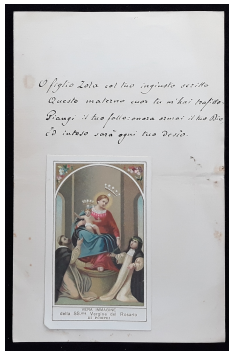 O figlio Zola col tuo ingiusto scritto
Questo materno cuor tu m'hai trafitto
Piangi il tuo fallo: onora ormai il tuo Dio
Ed inteso sarà ogni tuo desio.
VERA IMMAGINE
della SS.ma Vergine del Rosario
DI POMPEI